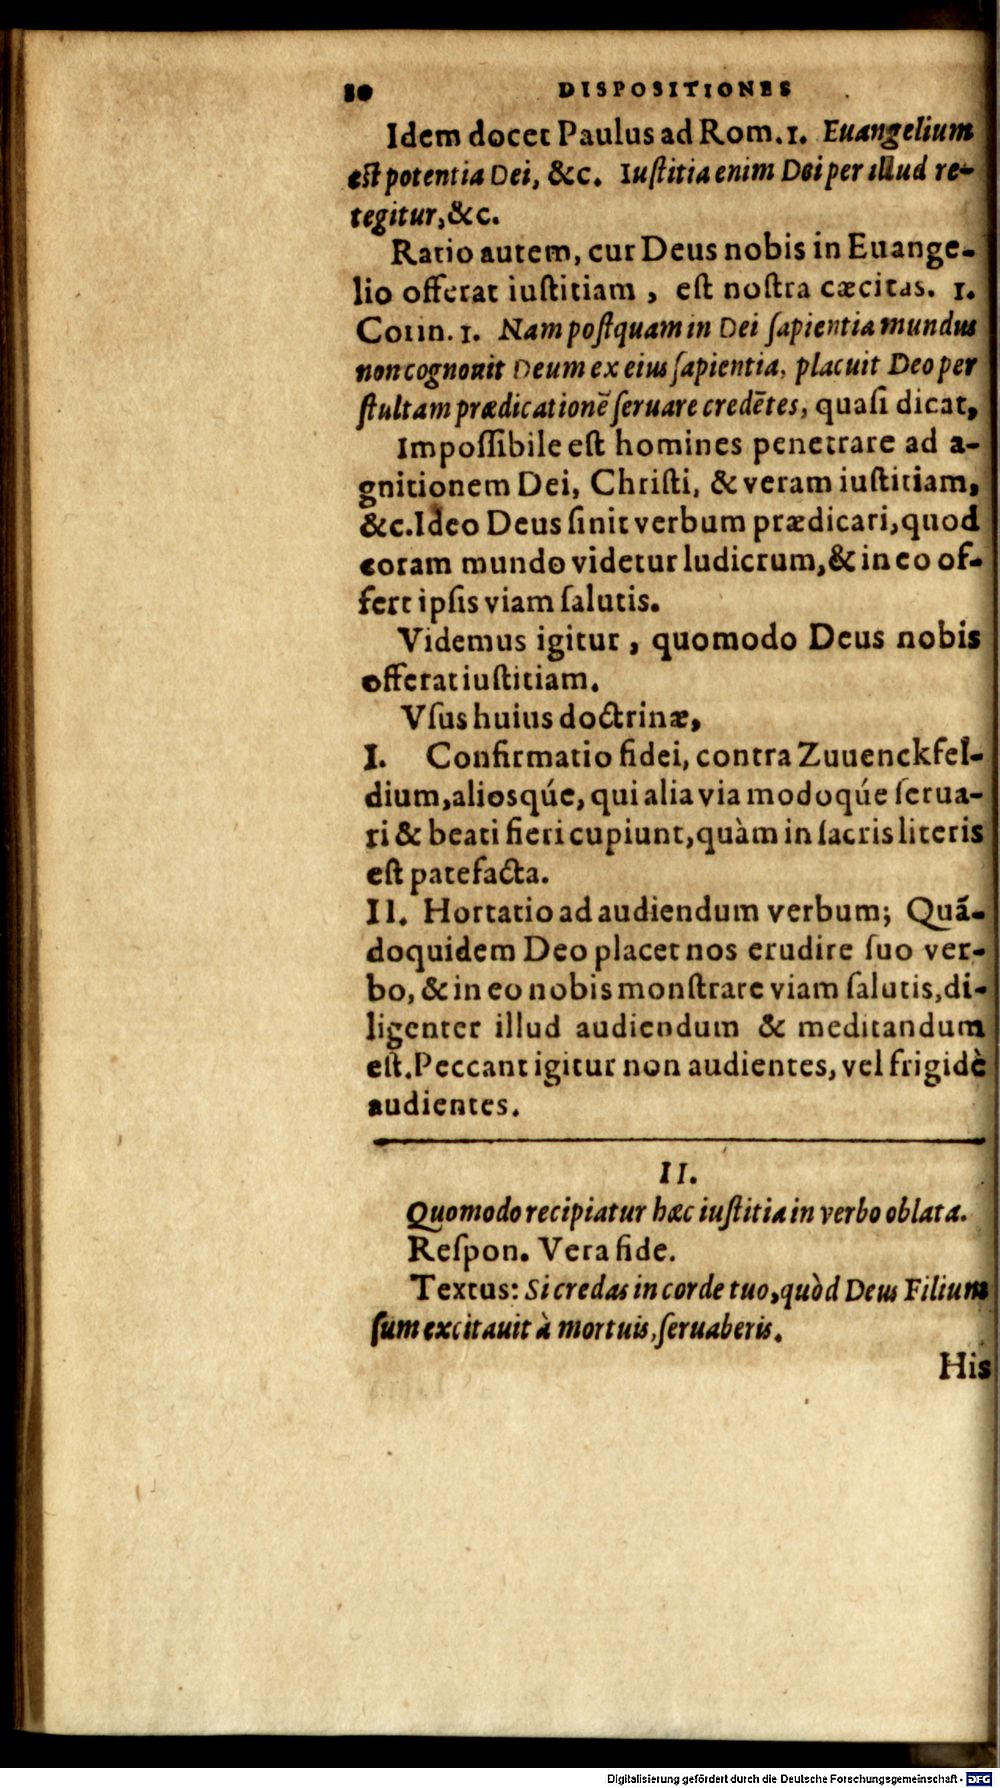 10 DISPOSITIONES
Idem docet Paulus ad Rom. 1. Euangelium
est potentia Dei, &c. Iuſtitia enim Dei per illud re-
tegitur, &c.
Ratio autem, cur Deus nobis in Euange-
lio offerat iuſtitiam, eſt noſtra cæcitas. 1.
Corin. 1. Nam poſtquam in Dei ſapientia mundus
non cognouit Deum ex eius ſapientia, placuit Deo per
ſtultam prædicationē ſeruare credētes, quaſi dicat,
Impoſſibile eſt homines penetrare ad a-
gnitionem Dei, Chriſti, & veram iuſtitiam,
&c. Ideo Deus ſinit verbum prædicari, quod
coram mundo videtur ludicrum, & in eo of-
fert ipſis viam ſalutis.
Videmus igitur, quomodo Deus nobis
offerat iuſtitiam.
Vſus huius doctrinæ,
I. Confirmatio fidei, contra Zuuenckfel-
dium, aliosqúe, qui alia via modoqúe ſerua-
ri & beati fieri cupiunt, quàm in ſacris literis
eſt patefacta.
II. Hortatio ad audiendum verbum; Quã-
doquidem Deo placet nos erudire ſuo ver-
bo, & in eo nobis monſtrare viam ſalutis, di-
ligenter illud audiendum & meditandum
eſt. Peccant igitur non audientes, vel frigidè
audientes.
II.
Quomodo recipiatur hæc iuſtitia in verbo oblata.
Reſpon. Vera fide.
Textus: Si credas in corde tuo, quòd Deus Filium
ſum excitauit à mortuis, ſeruaberis.
His
Digitalisierung gefördert durch die Deutsche Forschungsgemeinschaft - DFG